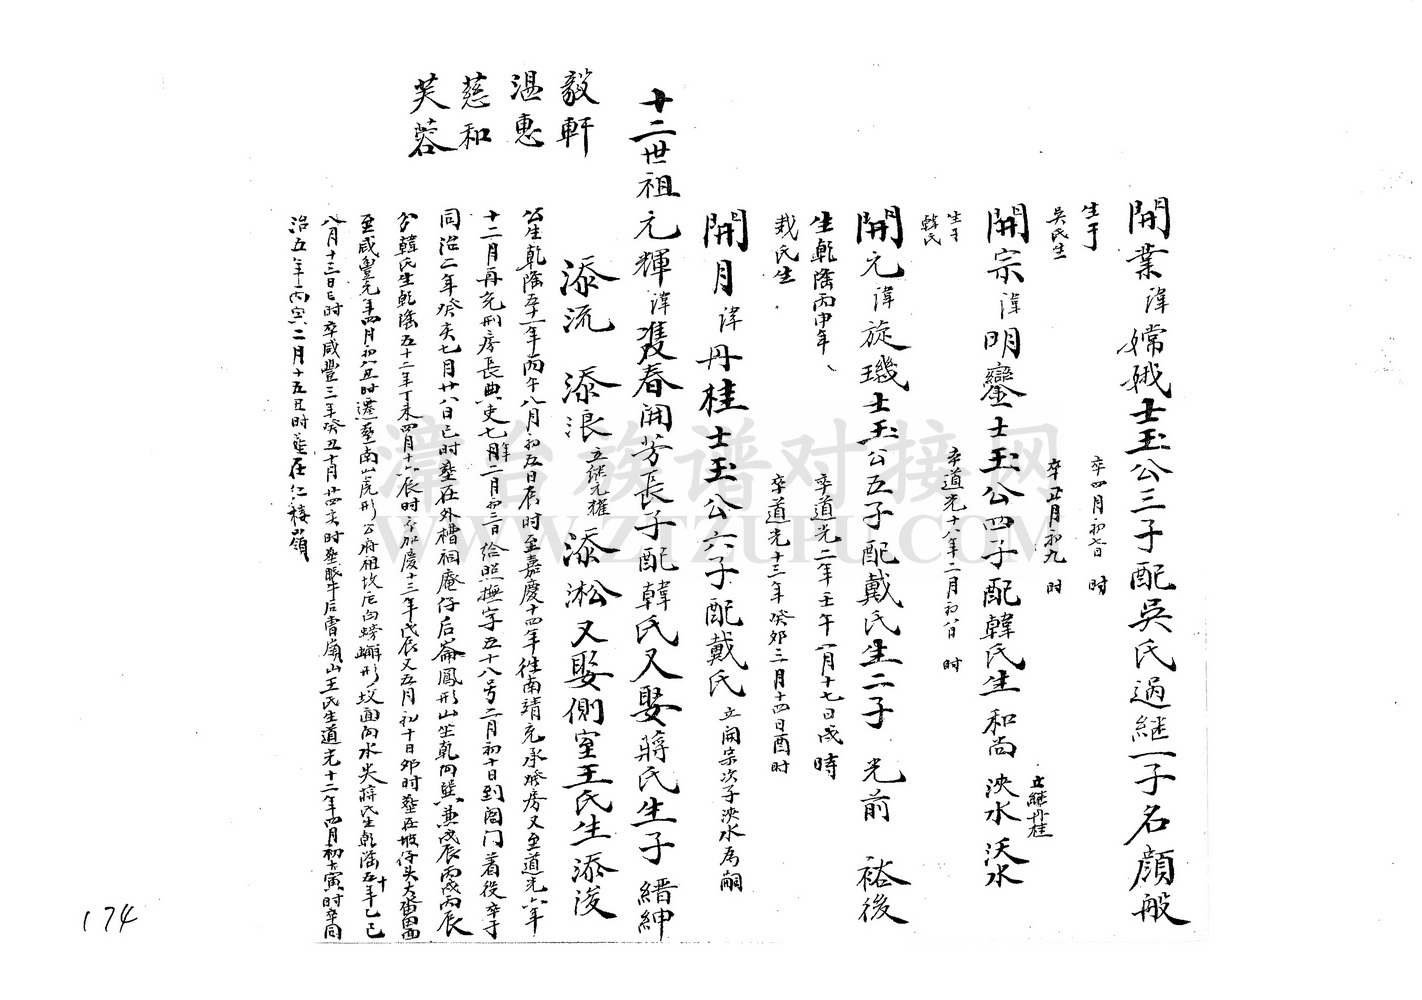 開業 諱 嫦娥 士玉公三子配吳氏過継一子名顔般
生于 卒四月初七日 時
吳氏生 卒正月初九 時
開宗 諱 明鑾 士玉公四子配韓氏生 和尚 泱水 立継丹桂 沃水
生于 卒道光十八年二月初八日 時
韓氏
開元 諱 旋璣 士玉公五子配戴氏生二子 光前 裕後
生乾隆丙申年、 卒道光二年壬午一月十七日戌時
栽氏生 卒道光十三年癸卯三月十四日酉时
開月 諱 丹桂 士玉公六子配戴氏 立開宗次子泱水為嗣
十二世祖元輝 諱 雙春開芳長子配韓氏又娶蔣氏生子 縉紳
添流 添浪 立継元耀 添淞 又娶側室王氏生添浚
公生乾隆五十一年丙午八月初五日辰时至嘉慶十四年往南靖充承發房又至道光六年
十二月再充刑房長典吏七年二月初三日给照撫字五十八号二月初十日到閤门着役卒于
同治二年癸亥七月廿八日巳时塟在外槽祠庵仔后崙鳳形山坐乾向巽兼戌辰丙戌丙辰
分韓氏生乾隆五十二年丁未四月十六辰时卒加慶十三年戊辰又五月初十日卯时塟在坡仔头大畨田面
至咸豐元年四月初六丑时遷塟南山虎形公府祖坟左向螃蠏形坟面向水尖蔣氏生乾隆五十年乙巳
八月十三日巳时卒咸豐三年癸丑十月廿四亥时塟眠牛后雷崩山王氏生道光十二年四月初七寅时卒同
治五年丙寅二月十五丑时塟在仁棲嶺
毅軒
温惠
慈和
芙蓉
174
漳台族谱对接网
WWW.ZTZUPU.COM